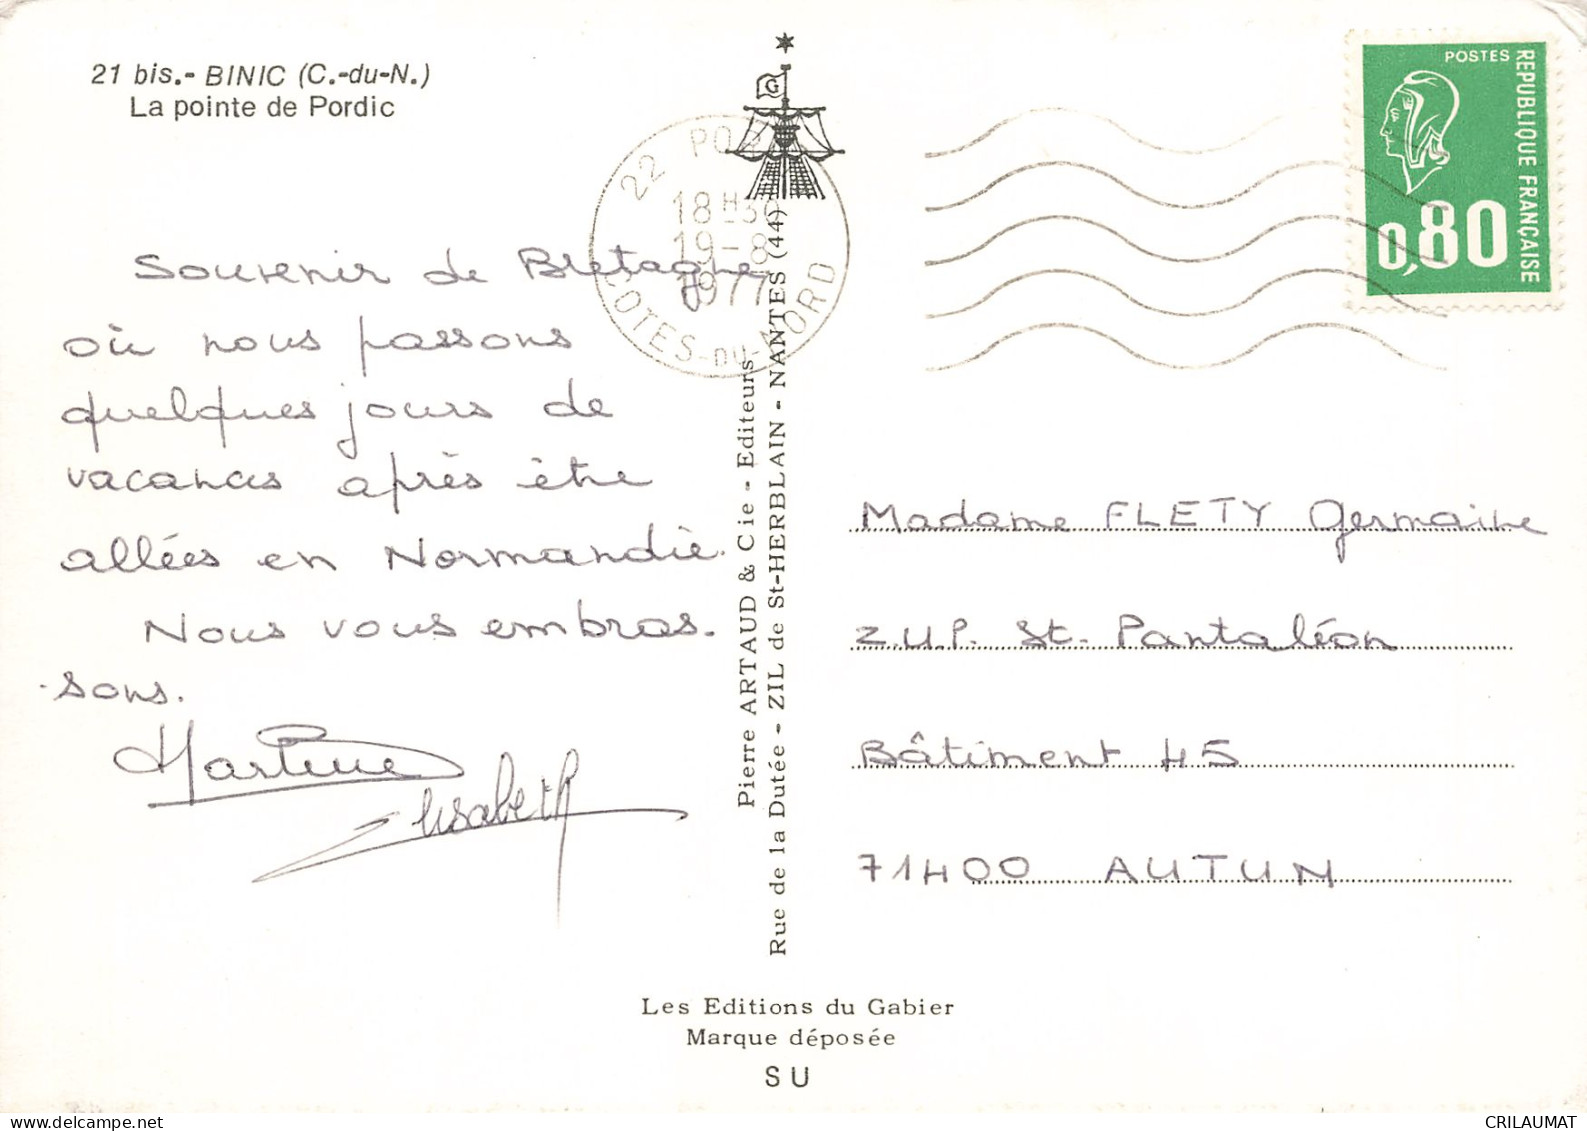 21 bis.- BINIC (C.-du-N.)
La pointe de Pordic
Souvenir de Bretagne
où nous passons
quelques jours de
vacances après être
allées en Normandie.
Nous vous embras.
.sons.
Martine
Elisabeth
G
22 POR
18H30
19-8
1977
COTES-DU-NORD
Pierre ARTAUD & Cie - Editeurs
Rue de la Dutée - ZIL de St-HERBLAIN - NANTES (44)
POSTES
REPUBLIQUE FRANÇAISE
0,80
Madame FLETY Germaine
Z.U.P. St. Pantaléon
Bâtiment 45
71400 AUTUN
Les Editions du Gabier
Marque déposée
SU
CRILAUMAT